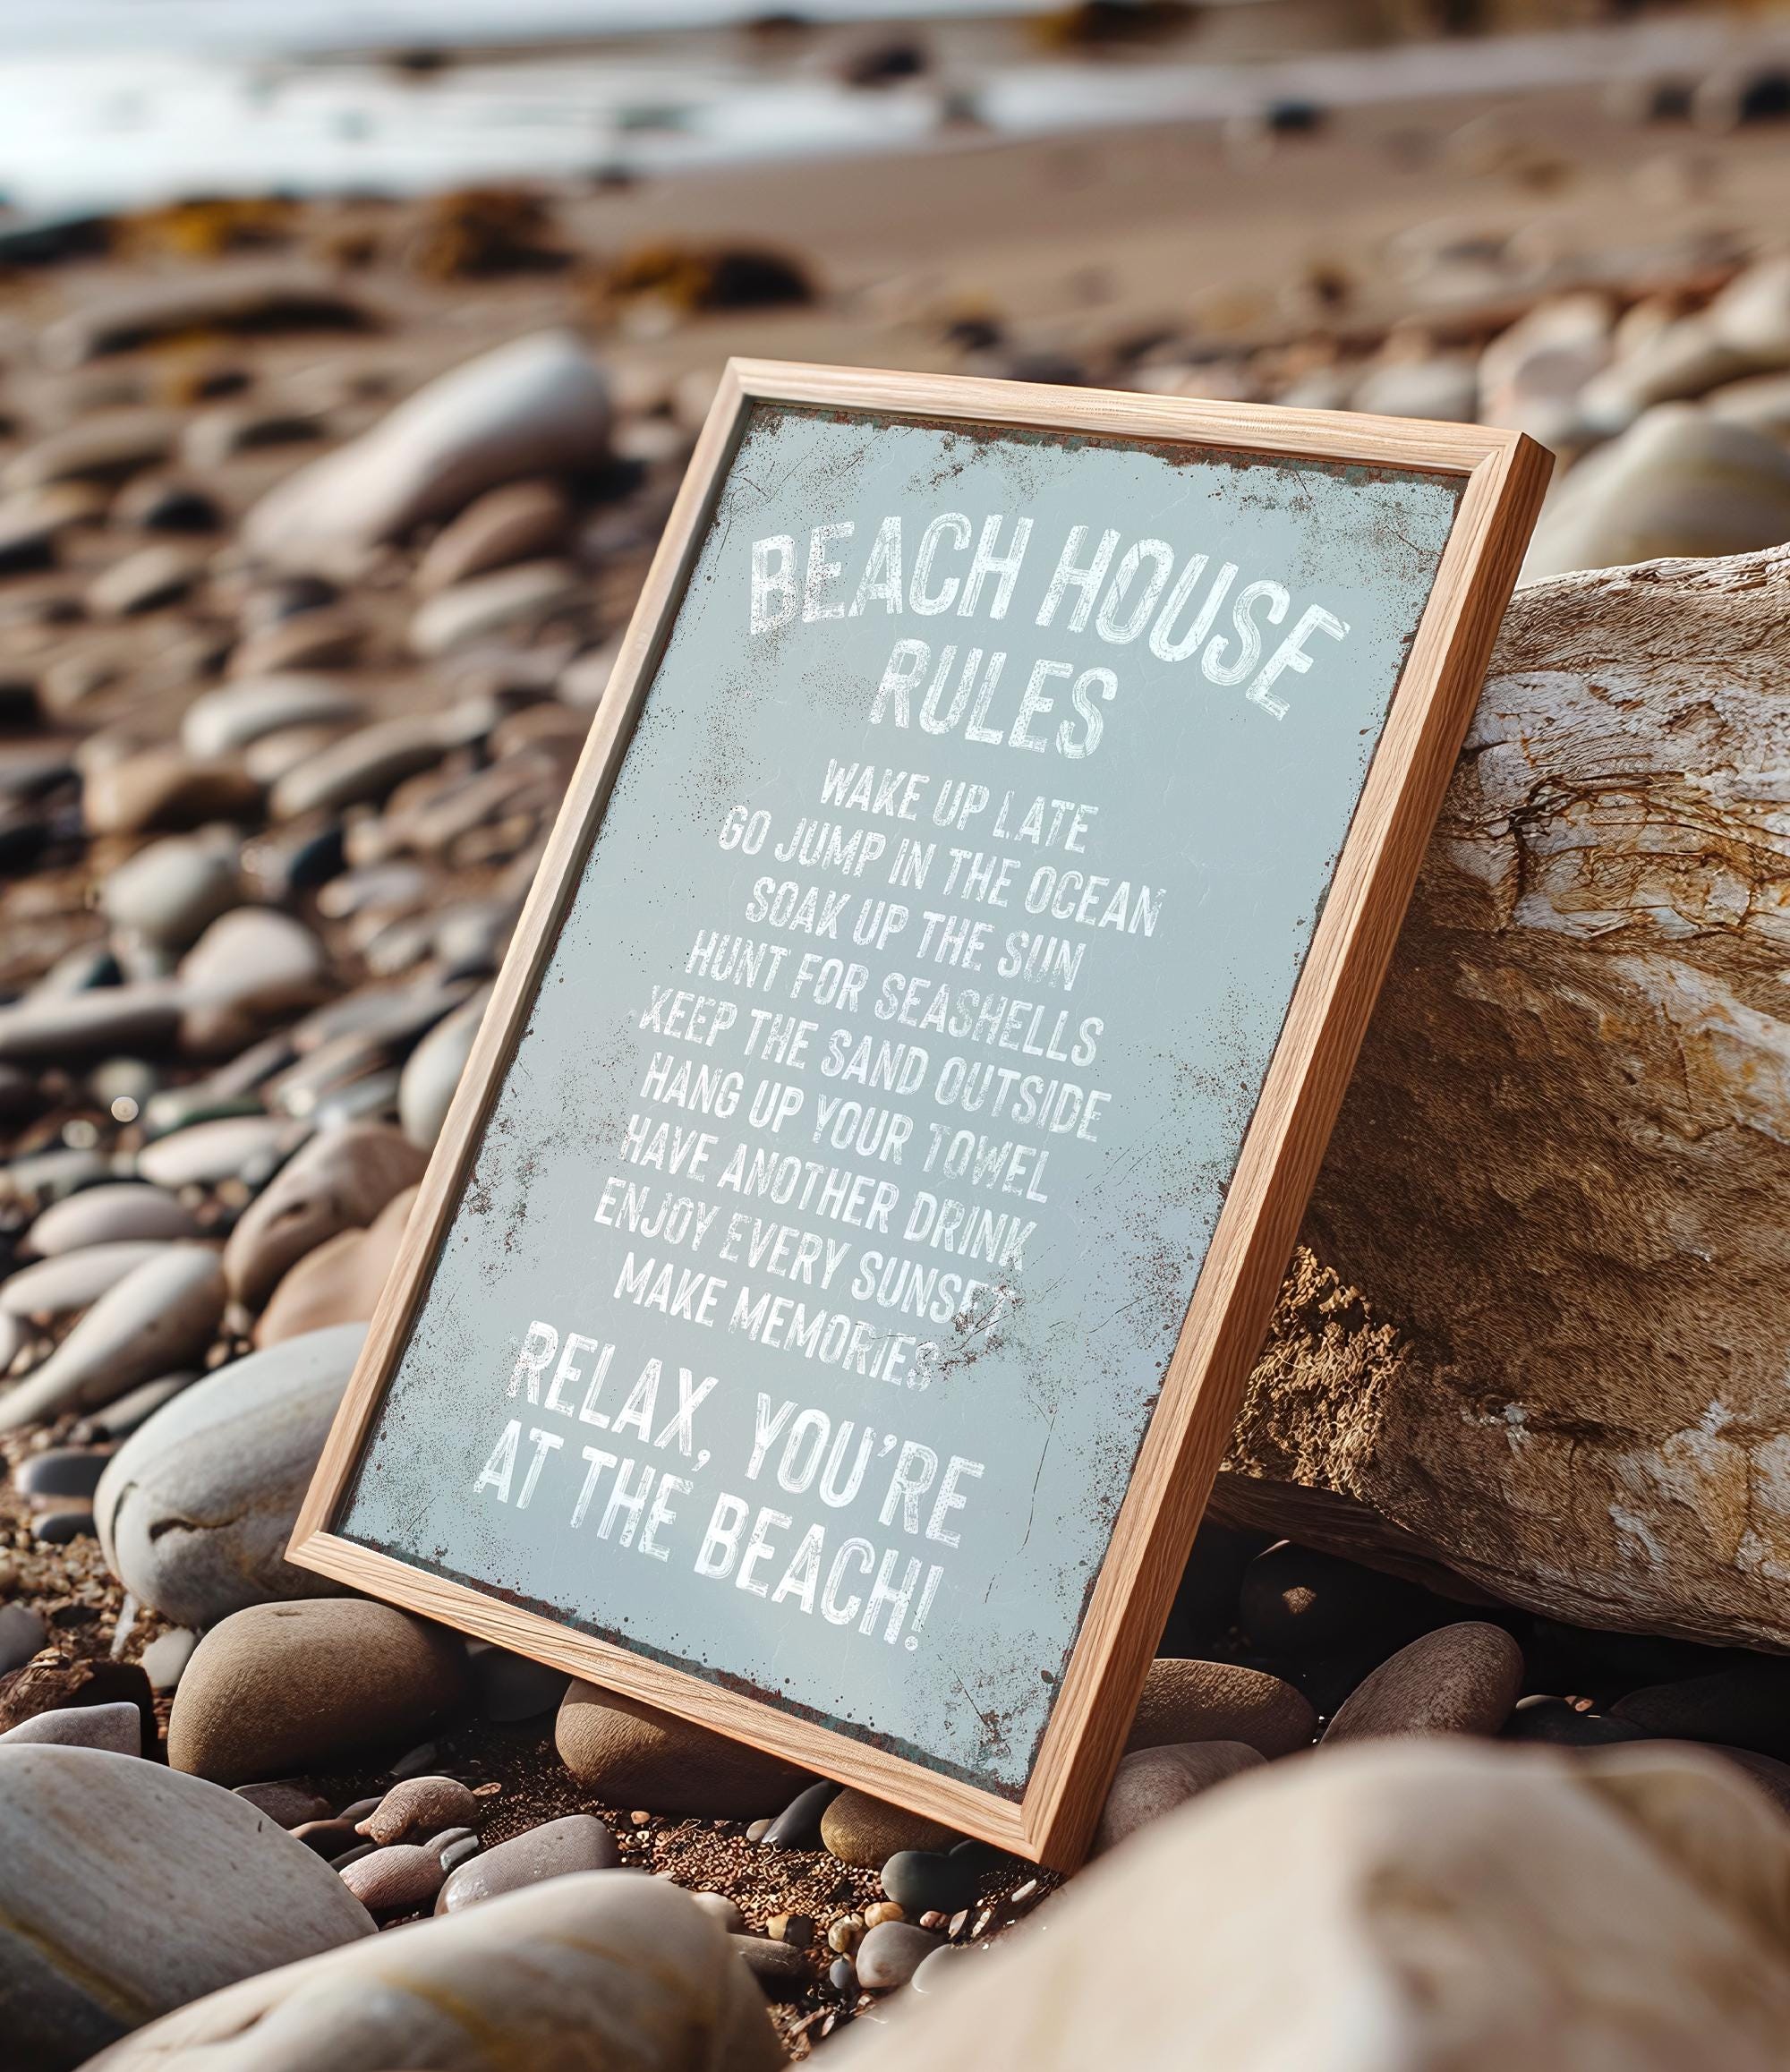 BEACH HOUSE
RULES
WAKE UP LATE
GO JUMP IN THE OCEAN
SOAK UP THE SUN
HUNT FOR SEASHELLS
KEEP THE SAND OUTSIDE
HANG UP YOUR TOWEL
HAVE ANOTHER DRINK
ENJOY EVERY SUNSET
MAKE MEMORIES
RELAX, YOU'RE
AT THE BEACH!